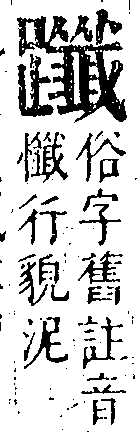 俗字舊註音
懺行貌泥